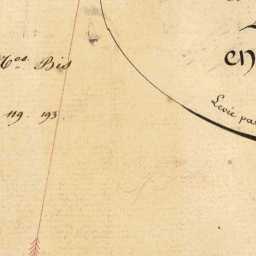 N.os Bis
119. 193.
en
Levée pa